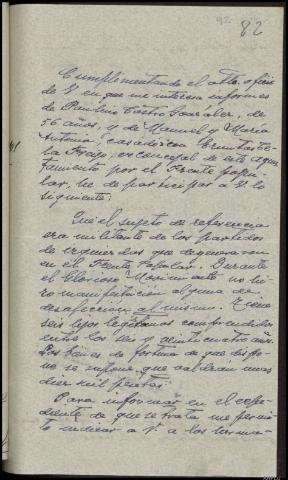 92 82
Cumplimentando el atto. oficio
de V. en que me interesa informes
de Paulino Castro González, de
56 años, y de Manuel y María
Antonia, casado con
concejal de este Ayun-
tamiento por el Frente popu-
lar, he de participar a V. lo
siguiente:
Que el sujeto de referencia
era militante de los partidos
de izquierdas que degeneraron
en el Frente Popular. Durante
el Glorioso Movimiento no hi-
zo manifestación alguna de
desafección al mismo. Tiene
seis hijos legítimos comprendidos
entre los seis y veinticuatro años.
Los bienes de fortuna de que dispo-
ne se supone que valdrán unos
diez mil pesetas.
Para informar en el expe-
diente de que se trata me permi-
to indicar a V. a los